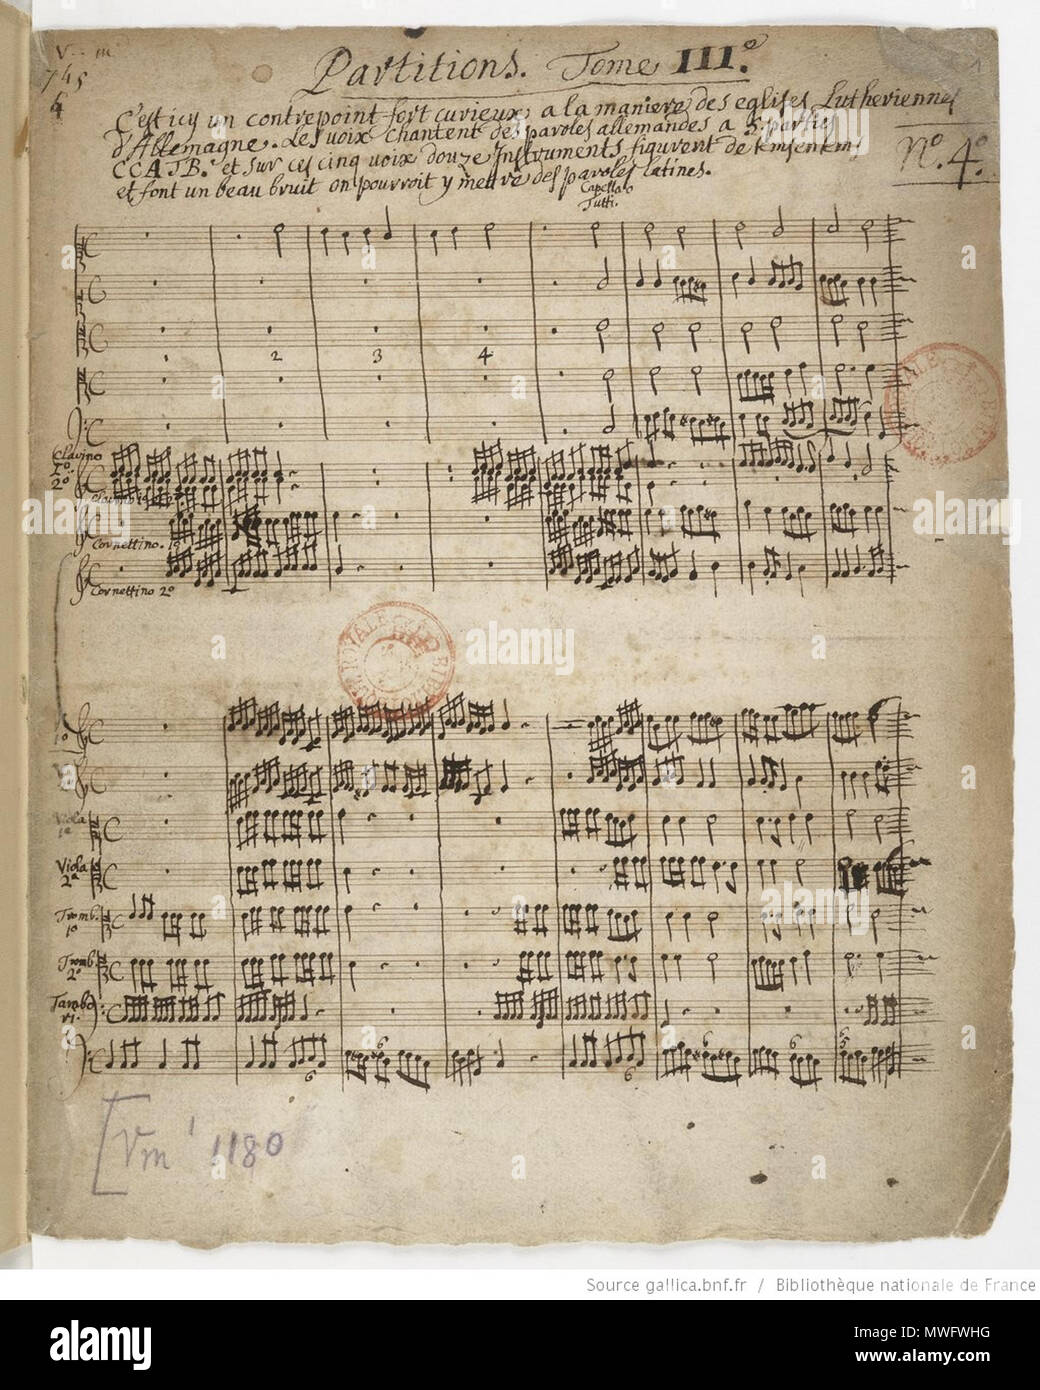 V. m
745
4
Partitions. Tome III.e
C'est icy un contrepoint fort curieux, a la maniere des eglises Lutheriennes
d'Allemagne. Les voix chantent des paroles allemandes a 5. parties
CCATB. et sur ces cinq voix douze Instruments figurent de tems en tems
et font un beau bruit on pourroit y mettre des paroles latines.
No. 4o.
1
Capella
Tutti.
2 3 4
Clarino
1o.
2o
Cornettino. 1o
Cornettino 2o
1o
Viola
1a
Viola
2a
Tromb.
1o
Tromb.
2o
Tambo
ri.
6 6 6 6 6 5
[Vm1 1180
BIBLIOTHEQUE ROYALE
alamy
Source gallica.bnf.fr / Bibliothèque nationale de France
alamy
Image ID: MWFWHG
www.alamy.com